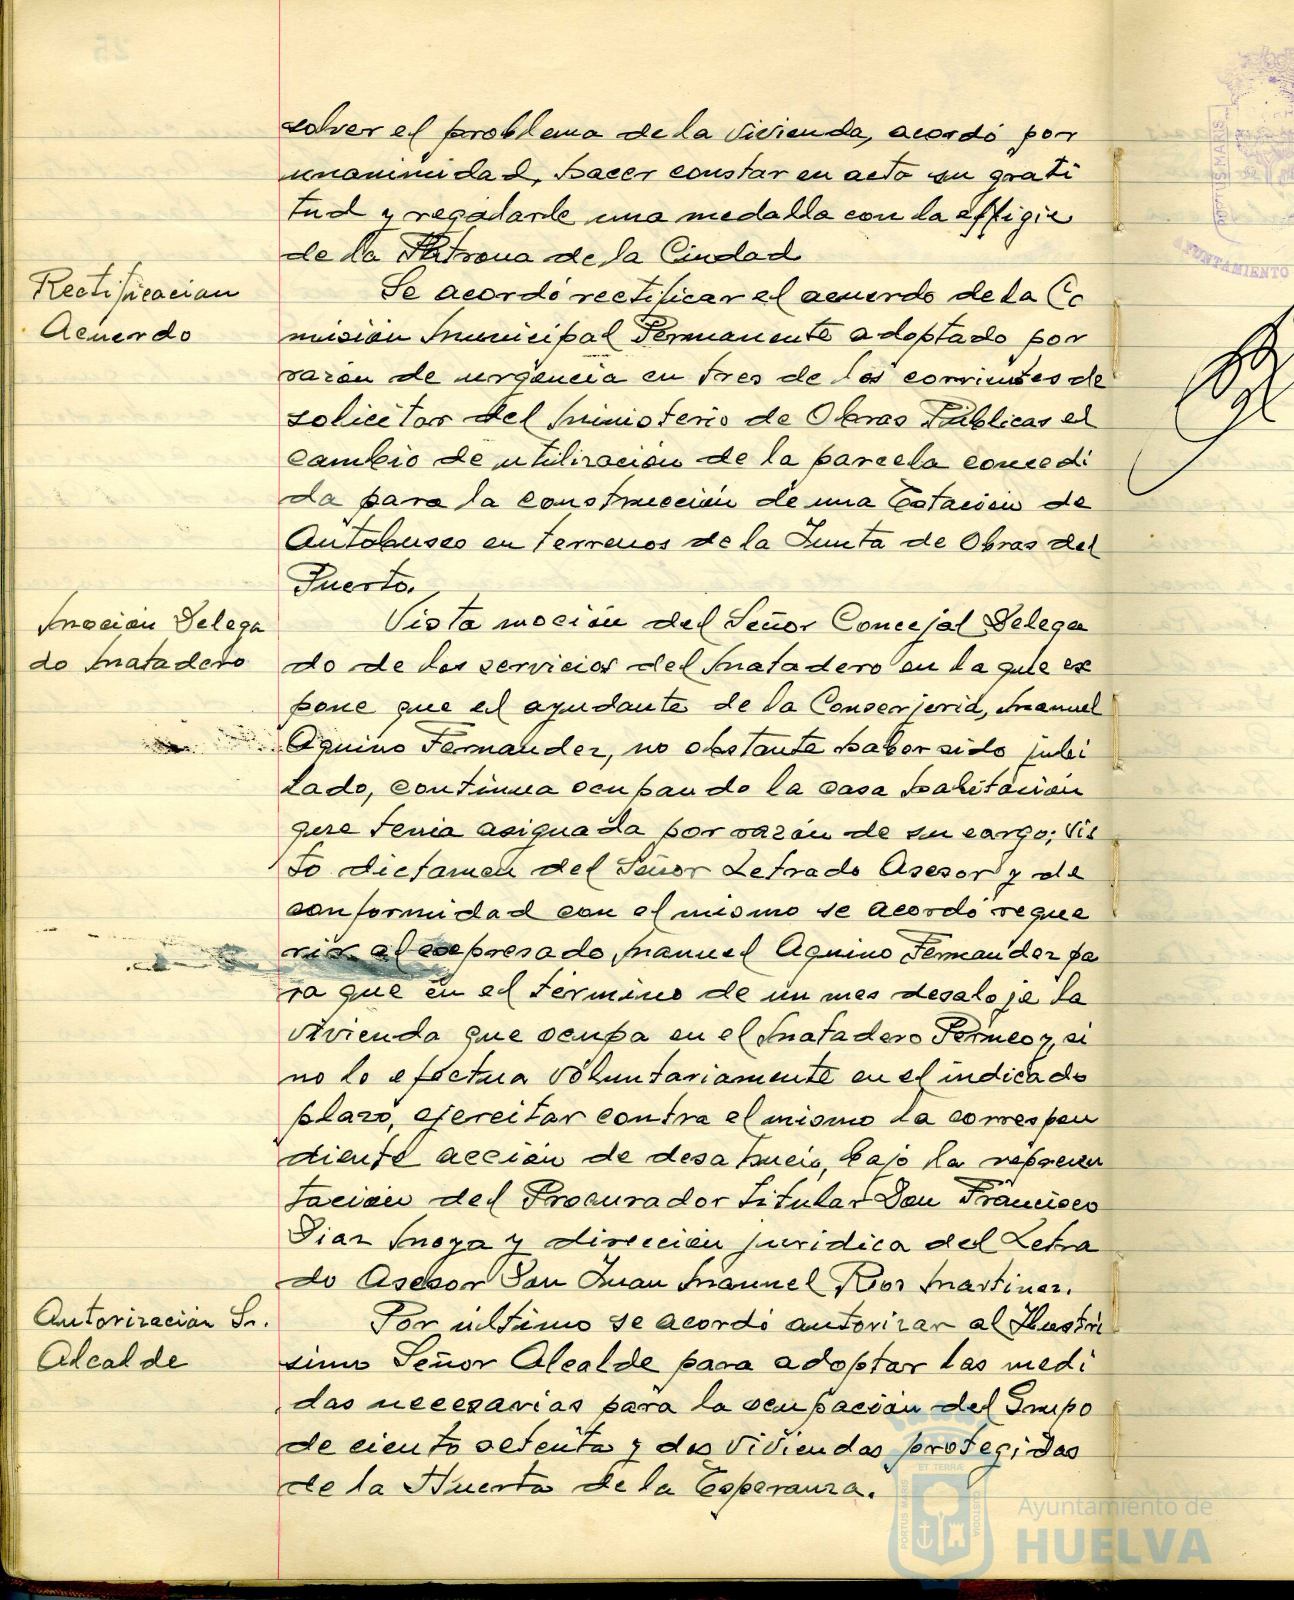 solver el problema de la vivienda, acordó por
unanimidad, hacer constar en acta su grati
tud y regalarle una medalla con la effigie
de la Patrona de la Ciudad
Rectificacion
Acuerdo
Se acordó rectificar el acuerdo de la Co
misión Municipal Permanente adoptado por
razón de urgencia en tres de los corrientes de
solicitar del Ministerio de Obras Públicas el
cambio de utilización de la parcela concedi
da para la construcción de una Estación de
Autobuses en terrenos de la Junta de Obras del
Puerto.
Moción Delega
do Matadero
Vista moción del Señor Concejal Delega
do de los servicios del Matadero en la que ex
pone que el ayudante de la Conserjeria, Manuel
Aquino Fernandez, no obstante haber sido jubi
lado, continua ocupando la casa habitación
que tenia asignada por razón de su cargo; vis
to dictamen del Señor Letrado Asesor y de
conformidad con el mismo se acordó reque
rir al expresado Manuel Aquino Fernandez pa
ra que en el término de un mes desaloje la
vivienda que ocupa en el Matadero Permeo y, si
no lo efectua voluntariamente en el indicado
plazo, ejercitar contra el mismo la correspon
diente acción de desahucio, bajo la represen
tación del Procurador titular Don Francisco
Diaz Moya y dirección juridica del Letra
do Asesor Don Juan Manuel Ros Martinez.
Autorización Sr.
Alcalde
Por último se acordó autorizar al Ilustri
simo Señor Alcalde para adoptar las medi
das necesarias para la ocupación del Grupo
de ciento setenta y dos viviendas protegidas
de la Huerta de la Esperanza.
PORTUS MARIS
AYUNTAMIENTO
ET TERRÆ
PORTUS MARIS
CUSTODIA
Ayuntamiento de
HUELVA